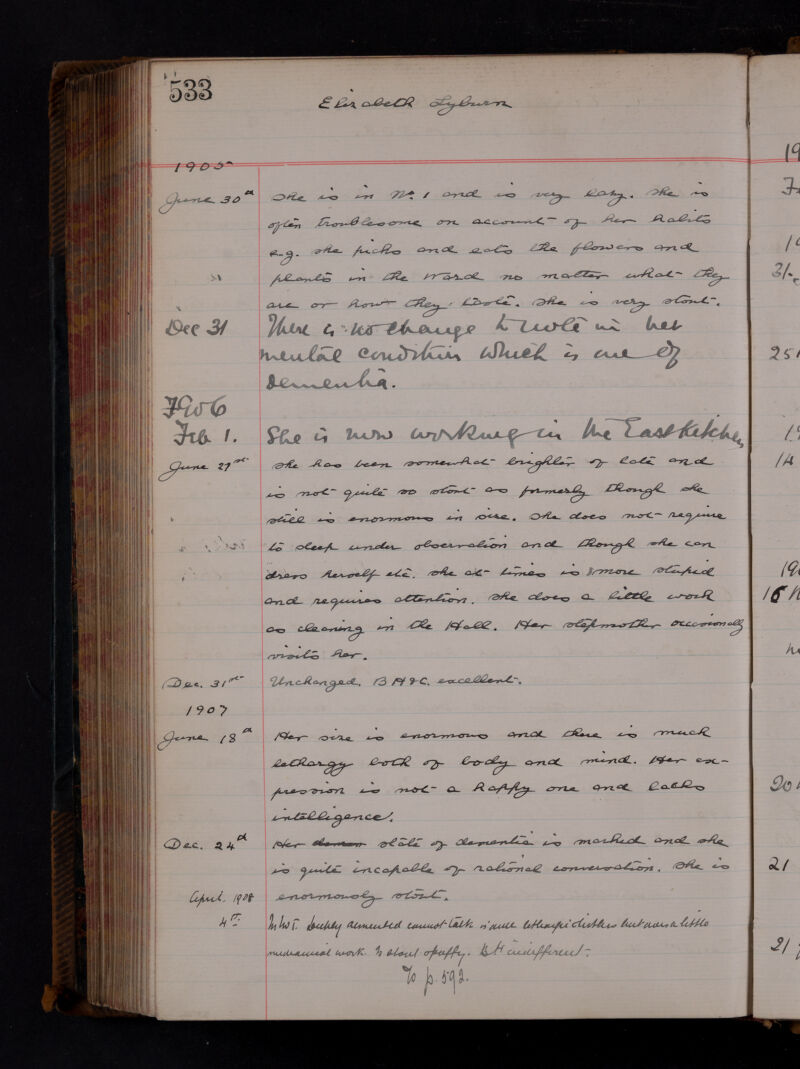 533
Elizabeth Lyburn
1905
June 30th She is in No. 1 and is very lazy. She is
often troublesome on account of her habits
e.g. she picks and eats the flowers and
plants in the ward no matter what they
are or how they taste. She is very stout.
Dec 31 There is no change to note in her
mental condition which is one of
Dementia.
1906
Feb 1. She is now working in the East Kitchen
June 27th She has been somewhat brighter of late and
is not quite so stout as formerly though she
still is enormous in size. She does not require
to sleep under observation and though she can
dress herself etc. she at times is more stupid
and requires attention. She does a little work
as cleaning in the Hall. Her stepmother occasionally
visits her.
Dec. 31st Unchanged. B H & C. excellent.
1907
June 18th Her size is enormous and there is much
lethargy both of body and mind. Her ex-
pression is not a happy one and lacks
intelligence.
Dec. 24th Her state of dementia is marked and she
is quite incapable of rational conversation. She is
enormously stout.
April. 1908
4th demented cannot talk is lethargic but does a little
mechanical work. Is stout & puffy. B H indifferent.
To p. 592.
19
31
251
19
14
190
16
20
21
21